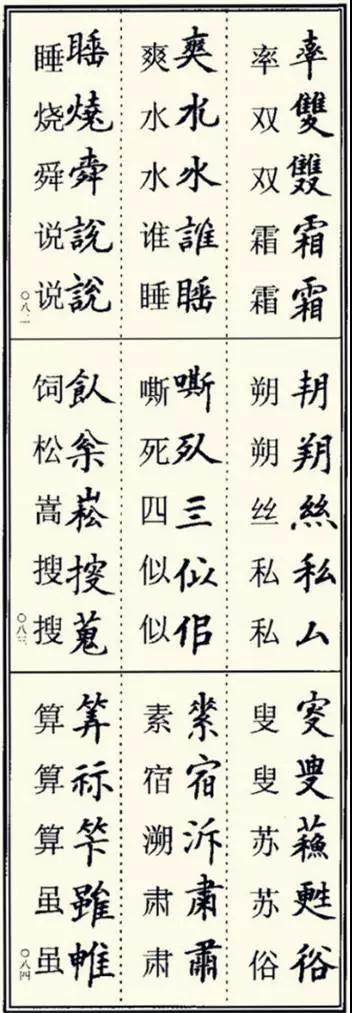 率雙雙霜霜
率双双霜霜
爽水水誰睡
爽水水谁睡
睡燒舜說說
睡烧舜说说
〇八二
絲私厶
朔朔丝私私
嘶似佀
嘶死四似似
飤枀崧搜蒐
饲松嵩搜搜
〇八三
叜叟蘓甦俗
叟叟苏苏俗
宿泝肅肅
素宿溯肃肃
筭祘笇雖
算算算虽虽
〇八四